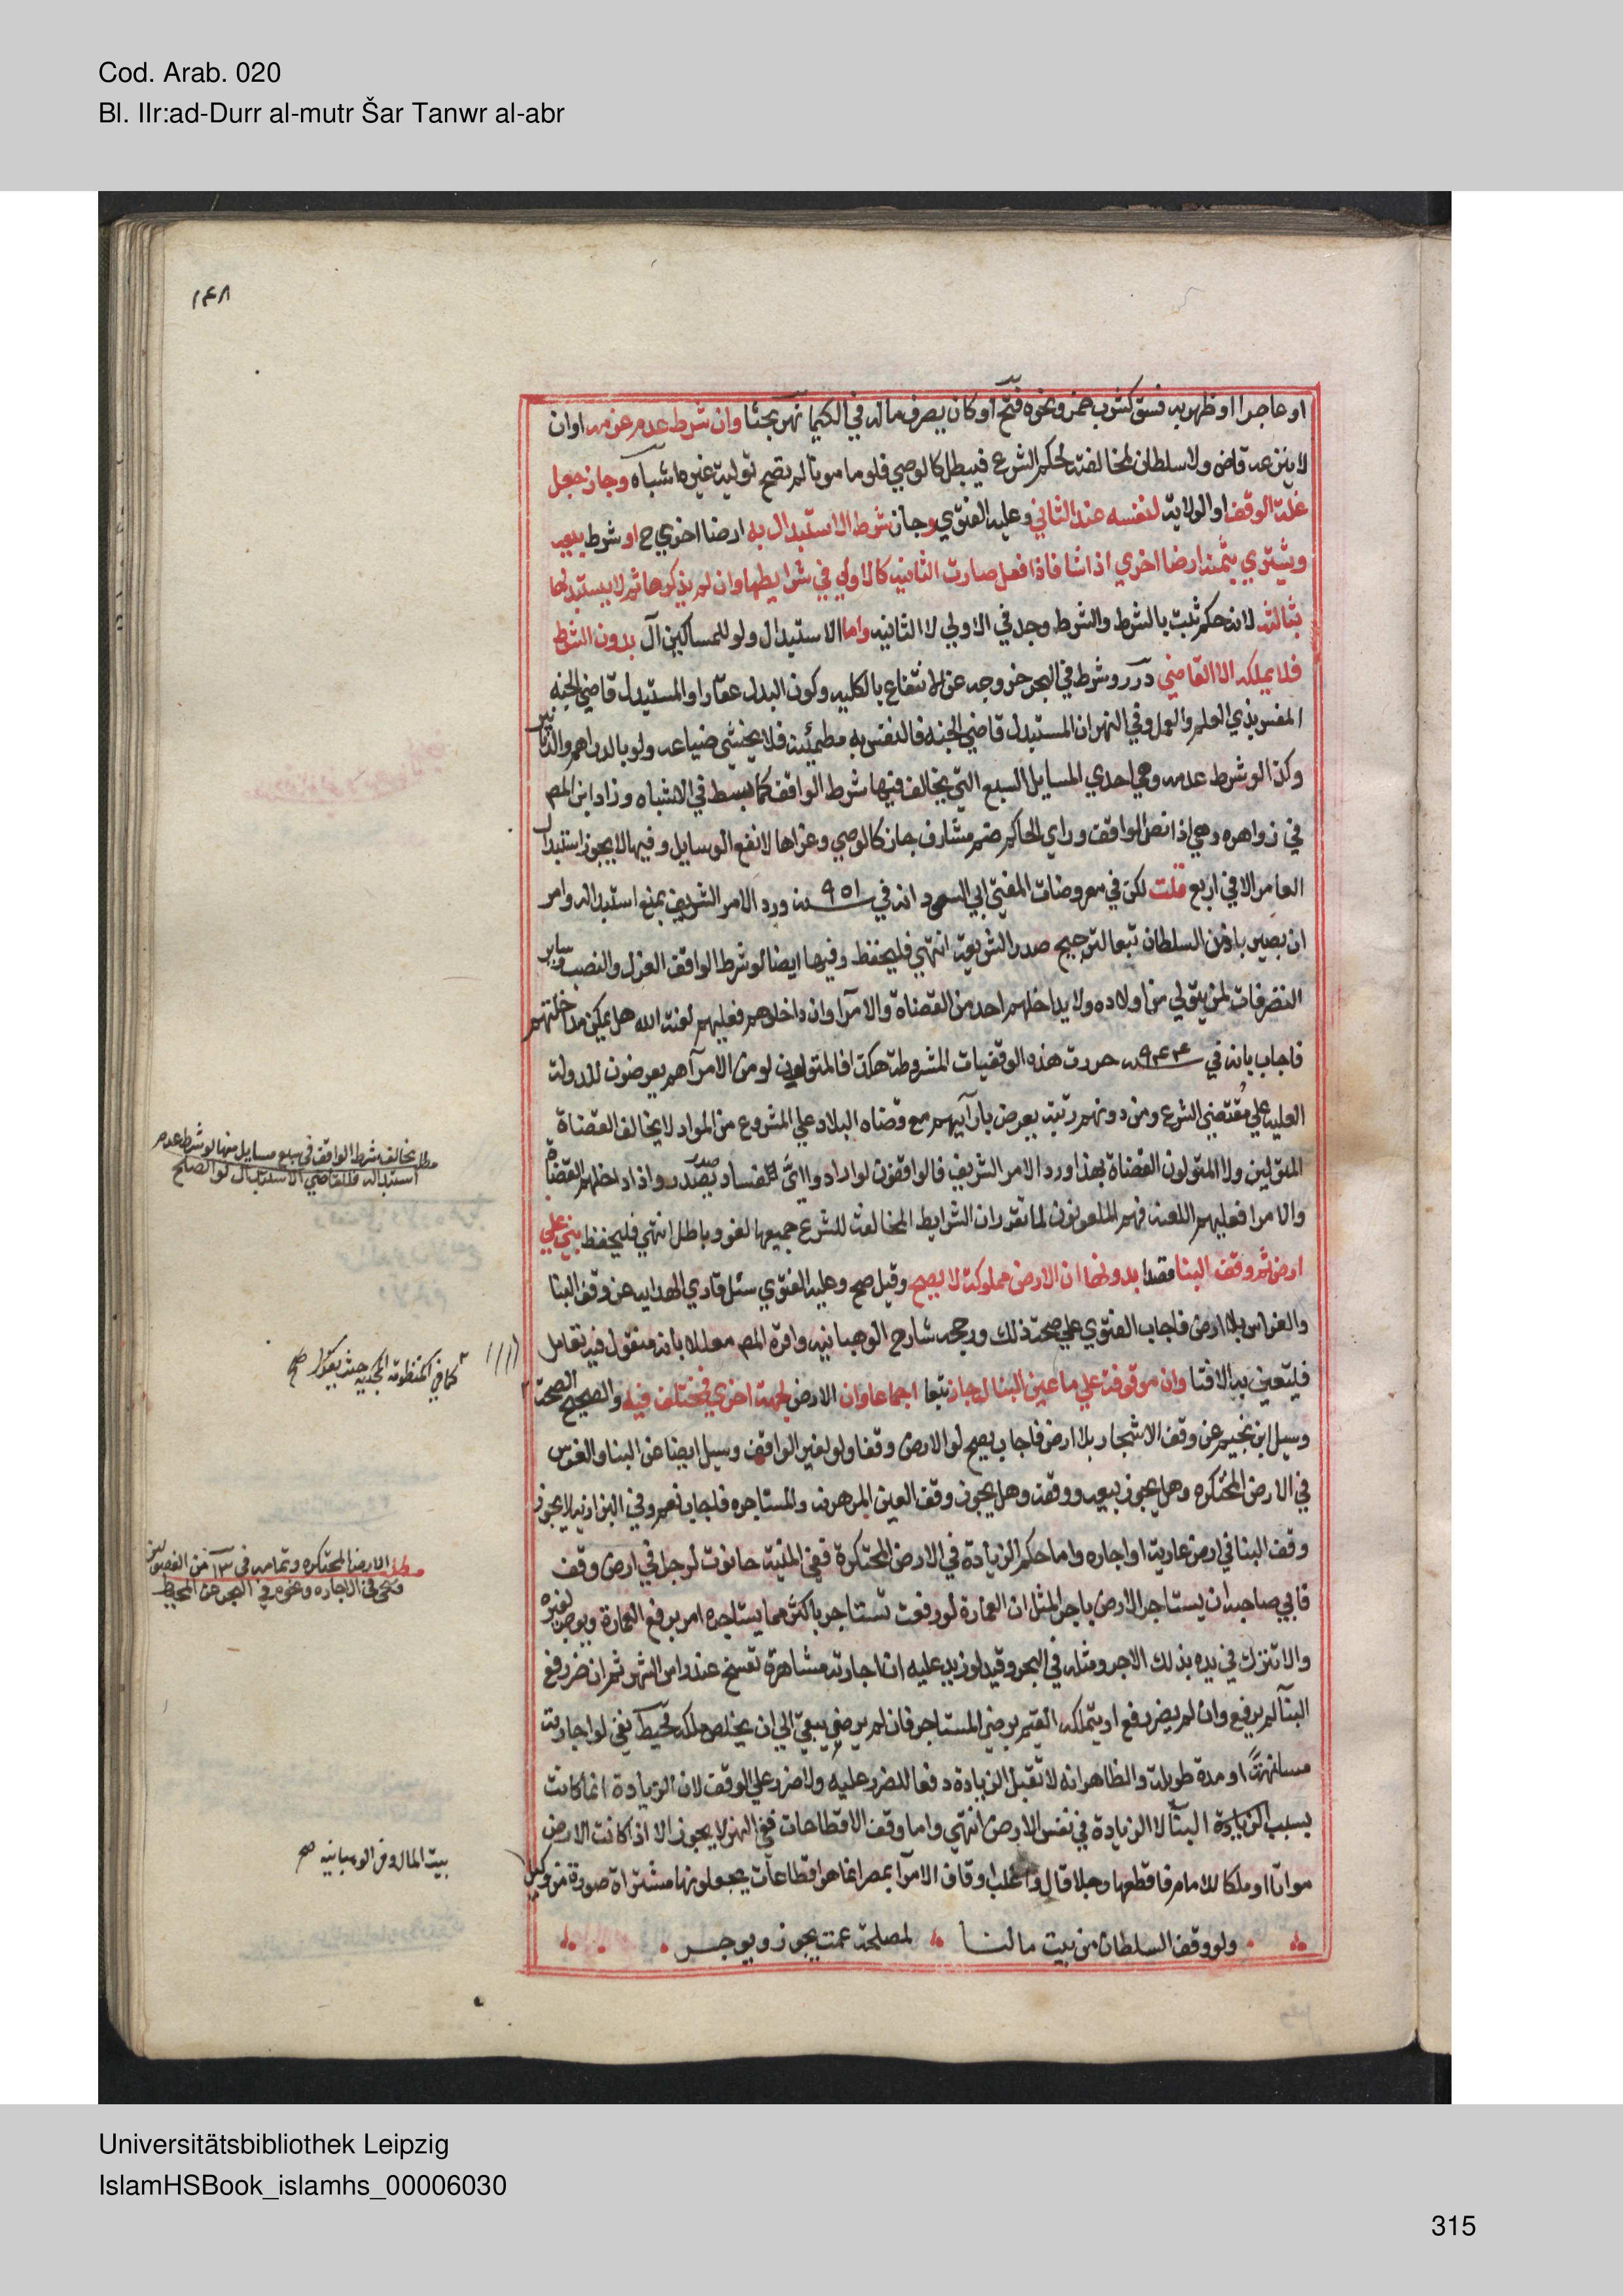 Cod. Arab. 020
Bl. IIr:ad-Durr al-mutr Šar Tanwr al-abr
١٤٨
او عاجزا او ظهر به فسق كشرب خمر ونحوه فتح او كان يصرف ماله في الكيميا نهر بحثا وان شرط عدم عزمه اوان
لا ينزعه قاض ولا سلطان لمخالفته لحكم الشرع فيبطل كالوصي فلو مامونا لم تصح تولية غيره اشباه وجاز جعل
غلة الوقف او الولاية لنفسه عند الثاني وعليه الفتوي وجاز شرط الاستبدال به ارضا اخري ح او شرط بيعه
ويشتري بثمنه ارضا اخري اذا شا فاذا فعل صارت الثانيه كالاولي في شرايطها وان لم يذكرها ثم لا يستبدلها
بثالثه لانه حكم ثبت بالشرط والشرط وجد في الاولي لا الثانيه واما الاستبدال ولو للمساكين آل بدون الشرط
فلا يملكه الا القاضي درر وشرط في البحر خروجه عن الانتفاع بالكليه وكون البدل عقارا والمستبدل قاضي الجنه
المفسر بذي العلم والعمل وفي النهر ان المستبدل قاضي الجنه فالنفس به مطمئنه فلا يخشي ضياعه ولو بالدراهم والدنانير
وكذا لو شرط عدمه وهي احدي المسايل السبع التي يخالف فيها شرط الواقف كما بسط في الاشباه وزاد ابن المص
في زواهره وهي اذا نص الواقف وراي الحاكم ضم مشارف جاز كالوصي وعزاها لانفع الوسايل وفيها لا يجوز استبدال
العامر الا في اربع قلت لكن في معروضات المفتي ابي السعود انه في ٩٥١ سنه ورد الامر الشريف بمنع استبداله وامر
ان يصير باذن السلطان تبعا لترجيح صدر الشريعة انتهي فليحفظ وفيها ايضا لو شرط الواقف العزل والنصب وساير
التصرفات لمن يتولي من اولاده ولا يداخلهم احد من القضاة والامرآ وان داخلوهم فعليهم لعنة الله هل يمكن مداخلتهم
فاجاب بانه في ٩٤٤ سنه حررت هذه الوقفيات المشروطة هكذا فالمتولون لو من الامرآ هم يعرضون للدولة
العليه علي مقتضي الشرع ومن دونهم رتبة يعرض بارآيهم مع قضاه البلاد علي المشروع من المواد لا يخالف القضاة
المتولين ولا المتولون القضاة بهذا ورد الامر الشريف فالواقفون لو ارادوا اىّ فساد صدر يصدر واذا داخلهم القضاة
والامرا فعليهم اللعنة فهم الملعونون لما تقرر ان الشرايط المخالفة للشرع جميعها لغو وباطل انتهي فليحفظ بني علي
ارض ثم وقف البنا قصدا بدونها ان الارض مملوكة لا يصح وقيل صح وعليه الفتوي سئل قاري الهدايه عن وقف البنا
والغراس بلا ارض فاجاب الفتوي علي صحة ذلك ورجحه شارح الوهبانيه واقره المص معللا بانه منقول فيه تعامل
فليتعين به الافتا وان موقوفة علي ما عين البنا له جاز تبعا اجماعا وان الارض لجهة اخري فمختلف فيه والصحيح الصحة
وسيل ابن نجيم عن وقف الاشجار بلا ارض فاجاب يصح لو الارض وقفا ولو لغير الواقف وسيل ايضا عن البنا والغرس
في الارض المحتكره وهل يجوز بيعه ووقفه وهل يجوز وقف العين المرهونه والمستاجره فاجاب نعم وفي البزازيه لا يجوز
وقف البنا في ارض عارية او اجاره واما حكم الزيادة في الارض المحتكرة ففي المنية حانوت لرجل في ارض وقف
فابي صاحبه ان يستاجر الارض باجر المثل ان العمارة لو رفعت تستاجر باكثر مما يستاجره امر برفع العمارة ويوجر لغيره
والا تترك في يده بذلك الاجر ومثله في البحر وفيه لو زيد عليه ان اجارته مشاهرة تفسخ عند راس الشهر ثم ان ضر رفع
البنآ لم يرفع وان لم يضر رفع او يتملكه القيم برضي المستاجر فان لم يرضي يبقي الي ان يخلص ملكه محيط بقي لو اجارته
مسانهةً او مدة طويلة والظاهر انه لا تقبل الزيادة دفعا للضرر عليه ولا ضرر علي الوقف لان الزيادة انما كانت
بسبب الزيادة البنآ لا الزيادة في نفس الارض انتهي واما وقف الاقطاعات ففي النهر لا يجوز الا اذا كانت الارض
مواتا او ملكا للامام فاقطعها رجلا قال واغلب اوقاف الامرآ بمصر انما هو اقطاعات يجعلونها مشتراة صورة من وكيل
ولو وقف السلطان من بيت مالنا لمصلحة عمت يجوز ويوجر
مطلب يخالف شرط الواقف في سبع مسايل منها لو شرط عدم
استبداله فللقاضي الاستبدال لو الصلح
كما في المنظومة المحبيه حيث يقول صح
مطلب الارض المحتكره وتمامه في ١٣ من الفصولين
في الاجاره ونحوه في البحر عن المحيط
بيت المال وفي الوهبانيه صح
Universitätsbibliothek Leipzig
IslamHSBook_islamhs_00006030
315